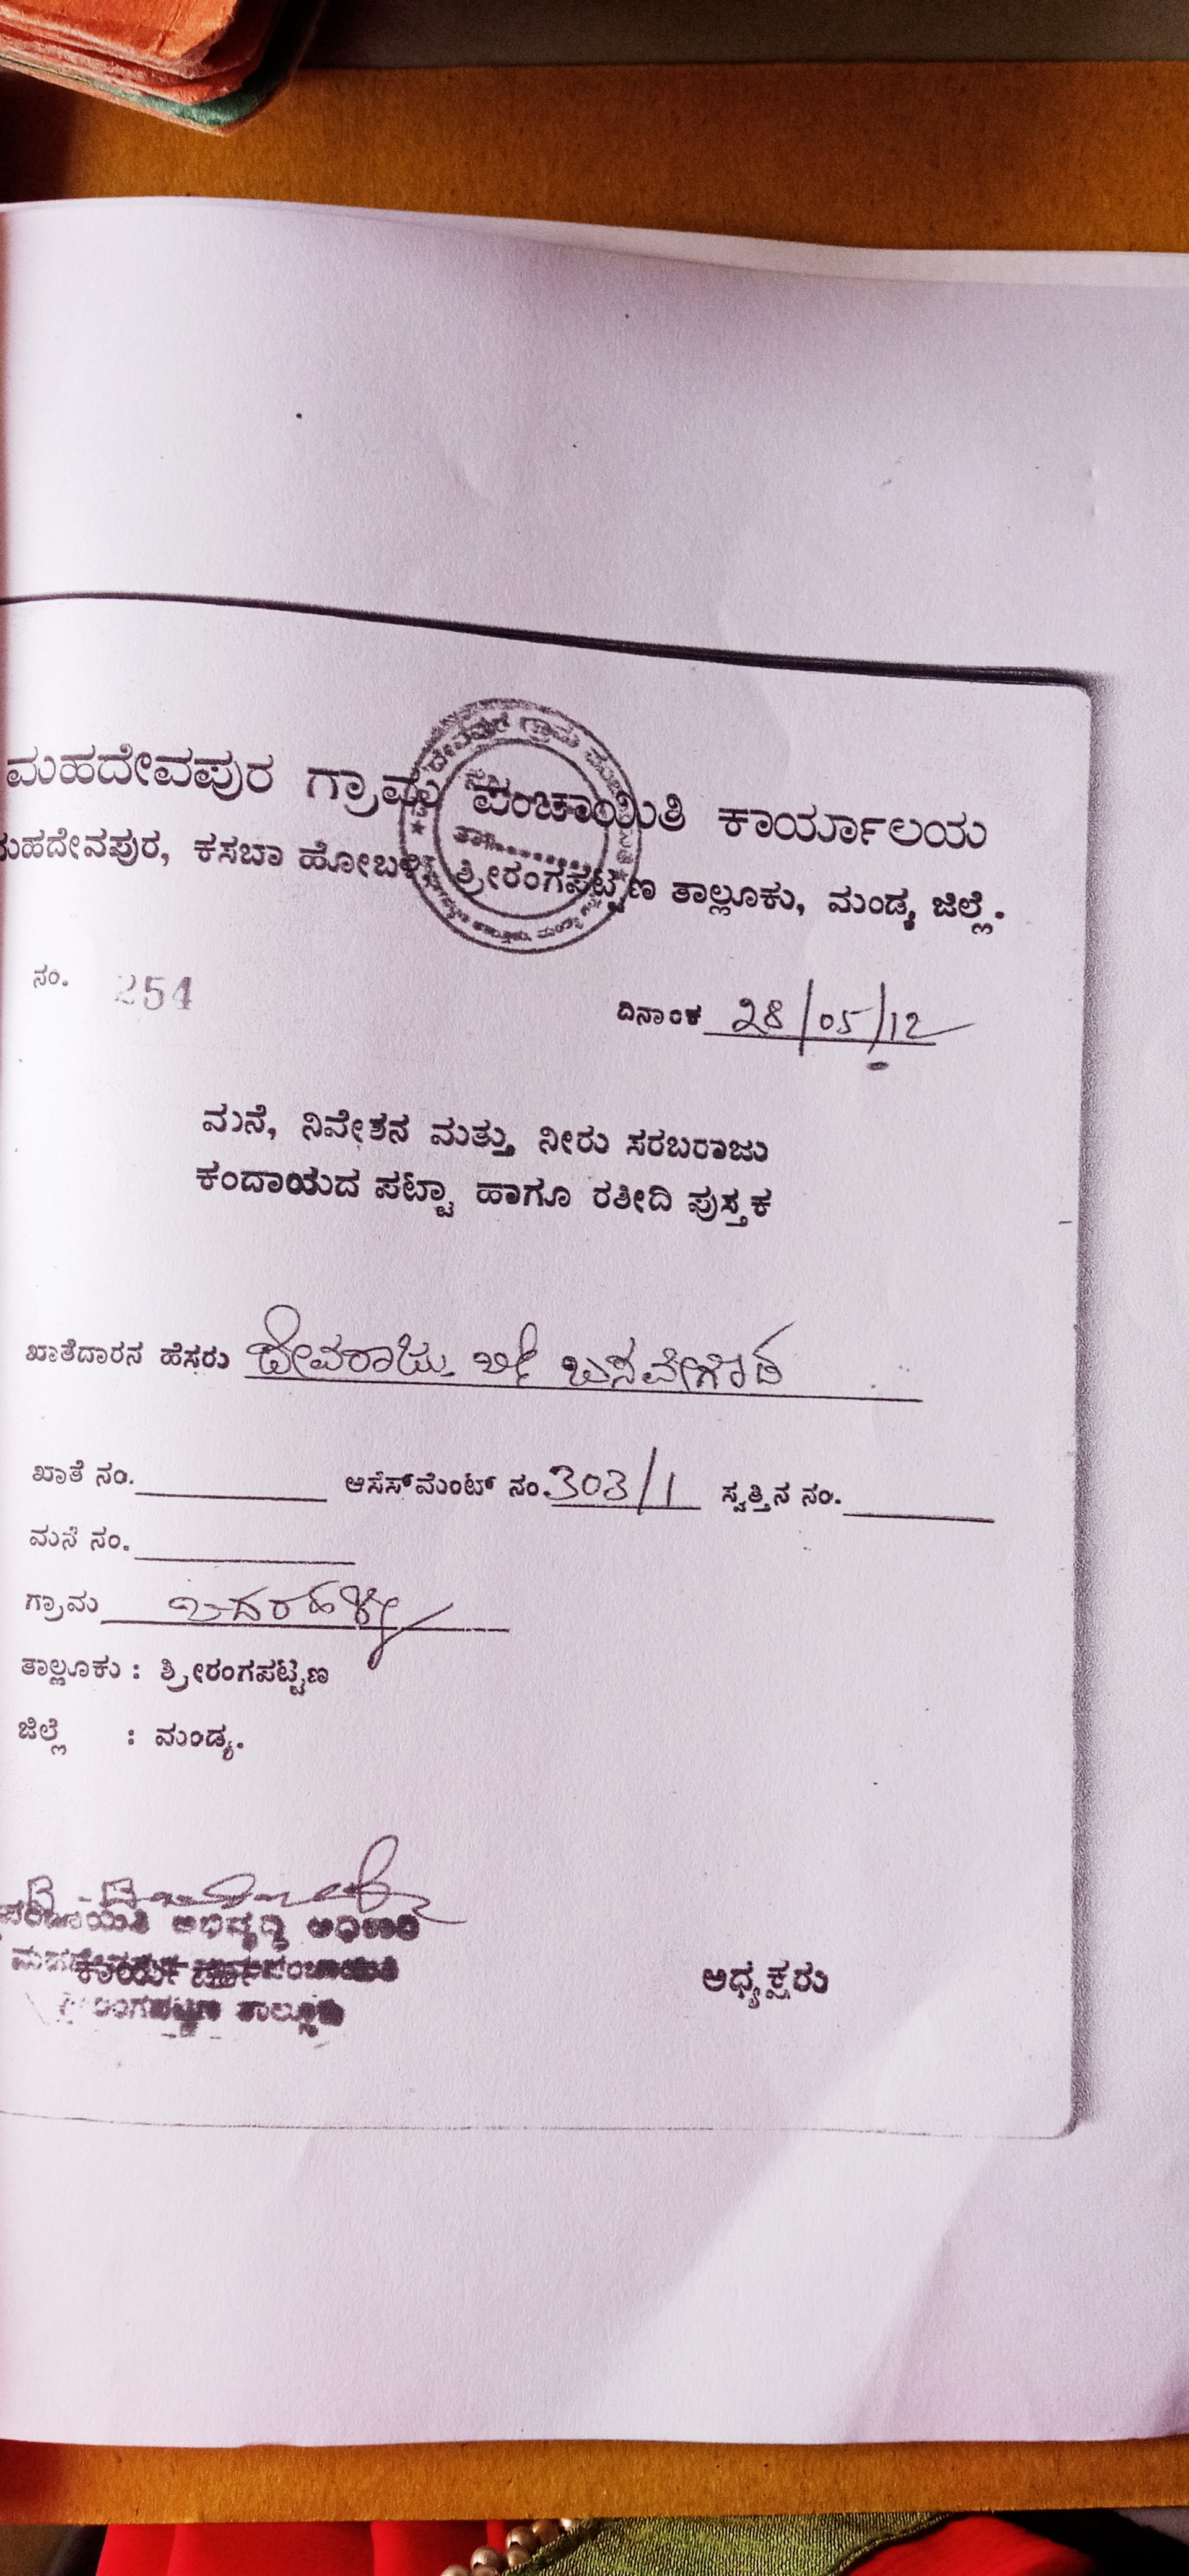 ಮಹದೇವಪುರ ಗ್ರಾಮ ಪಂಚಾಯಿತಿ ಕಾರ್ಯಾಲಯ
ಮಹದೇವಪುರ, ಕಸಬಾ ಹೋಬಳಿ, ಶ್ರೀರಂಗಪಟ್ಟಣ ತಾಲ್ಲೂಕು, ಮಂಡ್ಯ ಜಿಲ್ಲೆ.
ನಂ. 254 ದಿನಾಂಕ 28/05/12
ಮನೆ, ನಿವೇಶನ ಮತ್ತು ನೀರು ಸರಬರಾಜು
ಕಂದಾಯದ ಪಟ್ಟಾ ಹಾಗೂ ರಶೀದಿ ಪುಸ್ತಕ
ಖಾತೆದಾರನ ಹೆಸರು ದೇವರಾಜು ಬಸವೇಗೌಡ
ಖಾತೆ ನಂ. ಆಸೆಸ್‌ಮೆಂಟ್ ನಂ. 303/1 ಸ್ವತ್ತಿನ ನಂ.
ಮನೆ ನಂ.
ಗ್ರಾಮ
ತಾಲ್ಲೂಕು : ಶ್ರೀರಂಗಪಟ್ಟಣ
ಜಿಲ್ಲೆ : ಮಂಡ್ಯ.
ಅಭಿವೃದ್ಧಿ ಅಧಿಕಾರಿ
ಅಧ್ಯಕ್ಷರು